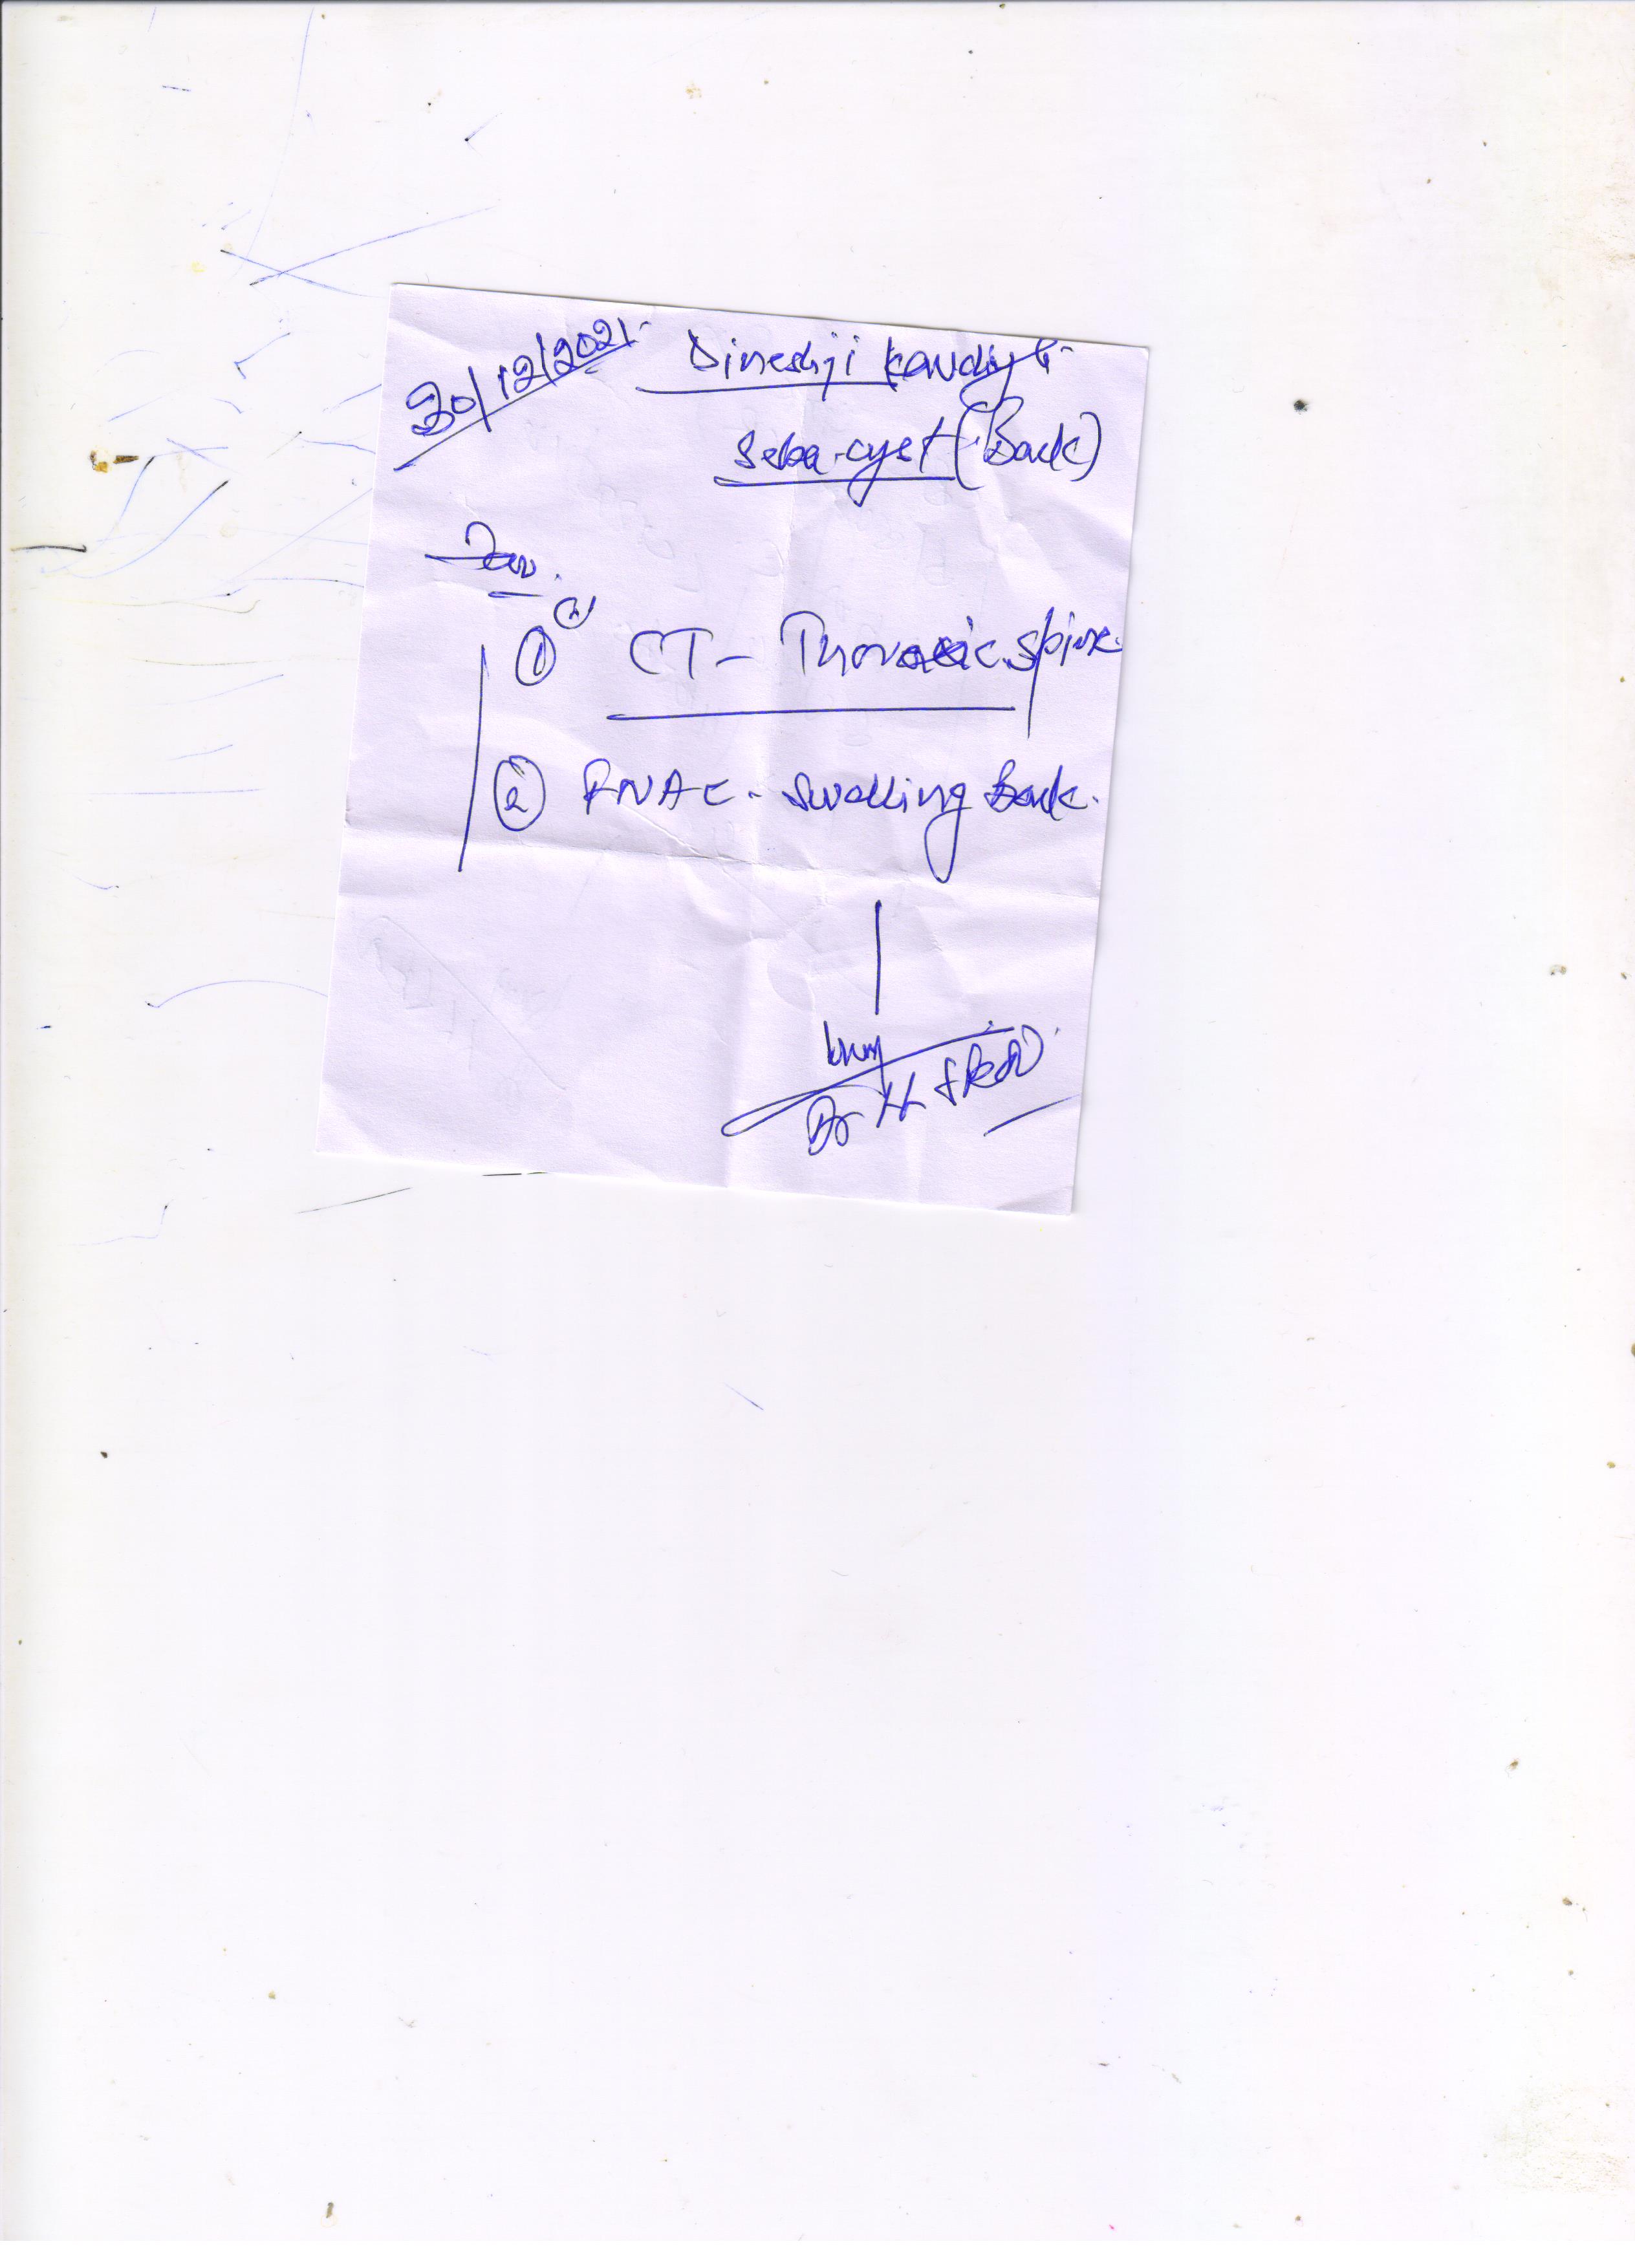 30/12/2021
Dineshji
Seba. cyst (Back)
Inv.
① CT - Thoracic spine.
② FNAC - Swelling Back.
Dr H